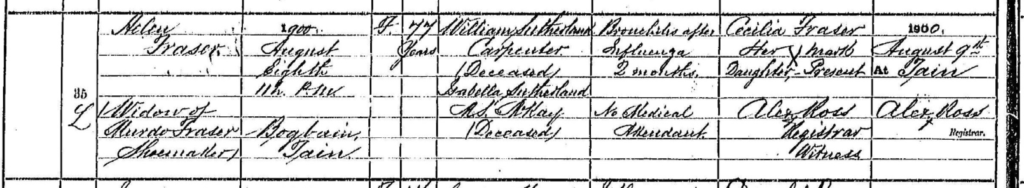 Helen
Fraser
(Widow of
Murdo Fraser
Shoemaker)
35
1900
August
Eighth
11h P.M
Bogbain
Tain
F.
77
Years
William Sutherland
Carpenter
(Deceased)
Isabella Sutherland
M.S. McKay
(Deceased)
Bronchitis after
Influenza
2 months.
No Medical
Attendant
Cecilia Fraser
Her X mark
Daughter Present
Alex Ross
Registrar
Witness
1900.
August 9th
At Tain
Alex Ross
Registrar.